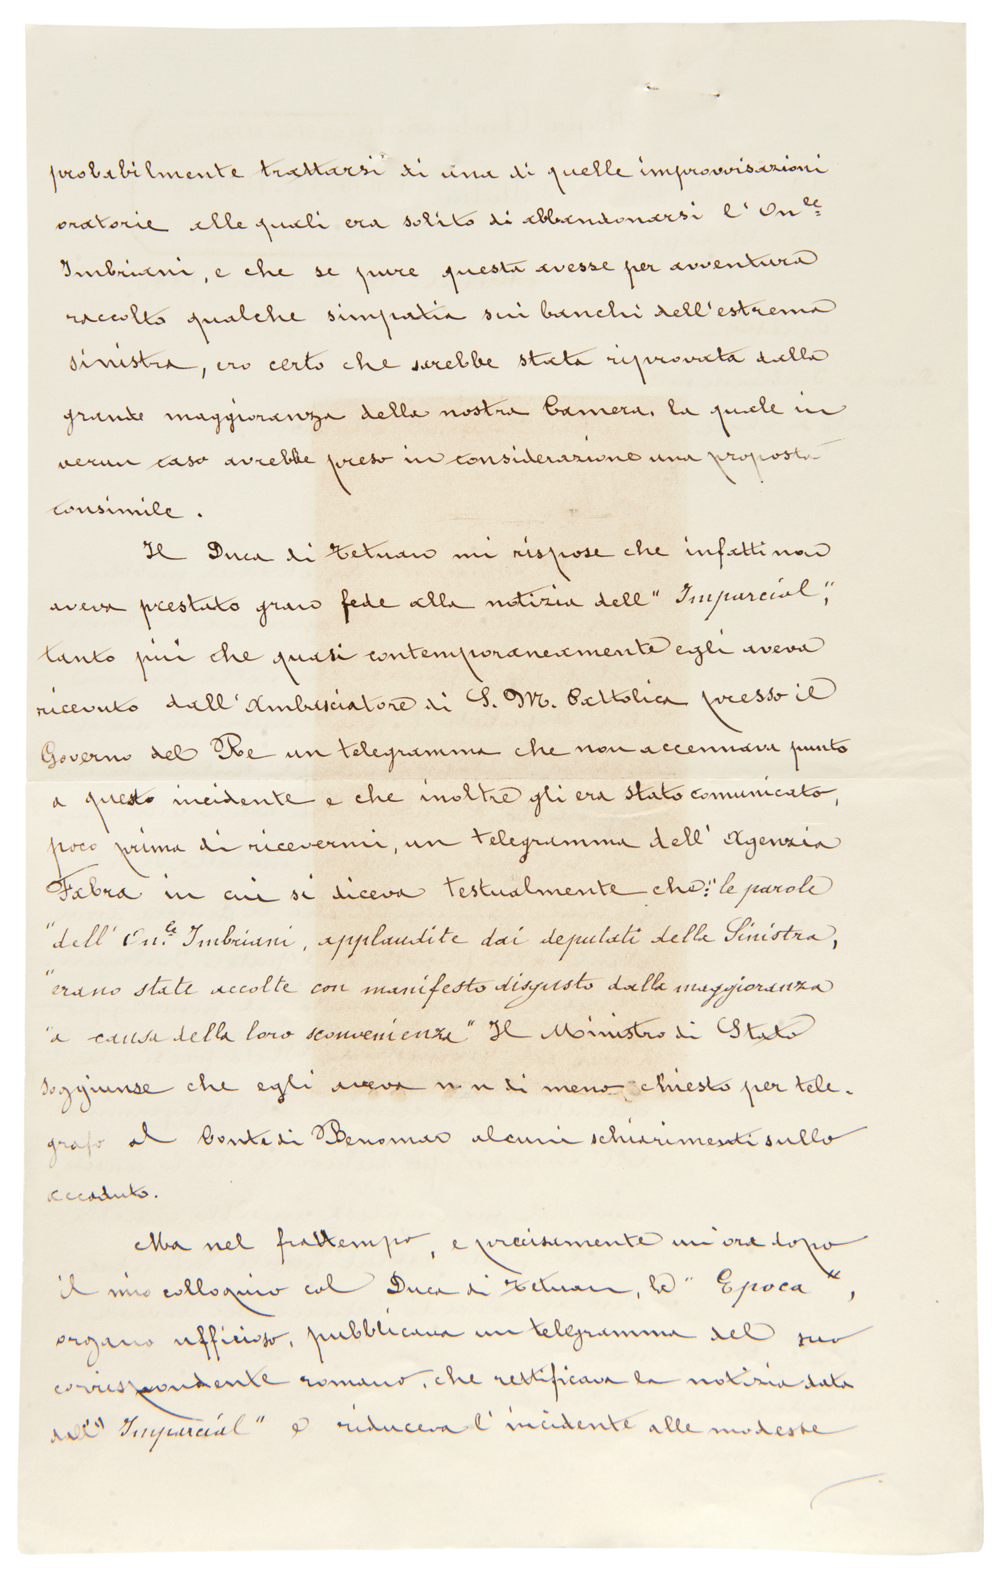 probabilmente trattarsi di una di quelle improvvisazioni
oratorie alle quali era solito di abbandonarsi l'On.le
Imbriani, e che se pure questa avesse per avventura
raccolto qualche simpatia sui banchi dell'estrema
sinistra, ero certo che sarebbe stata riprovata dalla
grande maggioranza della nostra Camera, la quale in
verun caso avrebbe preso in considerazione una proposta
consimile.
Il Duca di Tetuan mi rispose che infatti non
aveva prestato gran fede alla notizia dell'" Imparcial",
tanto più che quasi contemporaneamente egli aveva
ricevuto dall'Ambasciatore di S. M. Cattolica presso il
Governo del Re un telegramma che non accennava punto
a questo incidente e che inoltre gli era stato comunicato,
poco prima di ricevermi, un telegramma dell'Agenzia
Fabra in cui si diceva testualmente che: "le parole
"dell'On.le Imbriani, applaudite dai deputati della Sinistra,
"erano state accolte con manifesto disgusto dalla maggioranza
"a causa della loro sconvenienza" Il Ministro di Stato
soggiunse che egli aveva non di meno chiesto per tele-
grafo al Conte di Benomar alcuni schiarimenti sullo
accaduto.
Ma nel frattempo, e precisamente un'ora dopo
il mio colloquio col Duca di Tetuan, la "Epoca",
organo ufficioso, pubblicava un telegramma del suo
corrispondente romano, che rettificava la notizia data
dall'"Imparcial" e riduceva l'incidente alle modeste